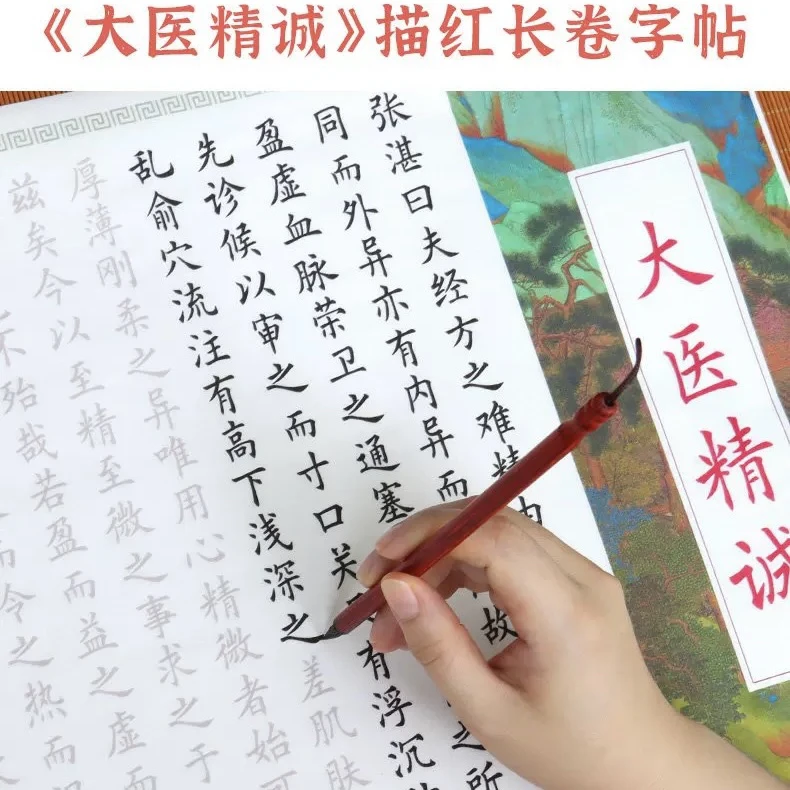 《大医精诚》描红长卷字帖
大医精诚
张湛曰夫经方之难精由
同而外异亦有内异而故
盈虚血脉荣卫之通塞之所
先诊候以审之而寸口关有浮沉
乱俞穴流注有高下浅深之差肌肤
厚薄刚柔之异唯用心精微者始可
兹矣今以至精至微之事求之于
不殆哉若盈而益之虚而
冷之热而